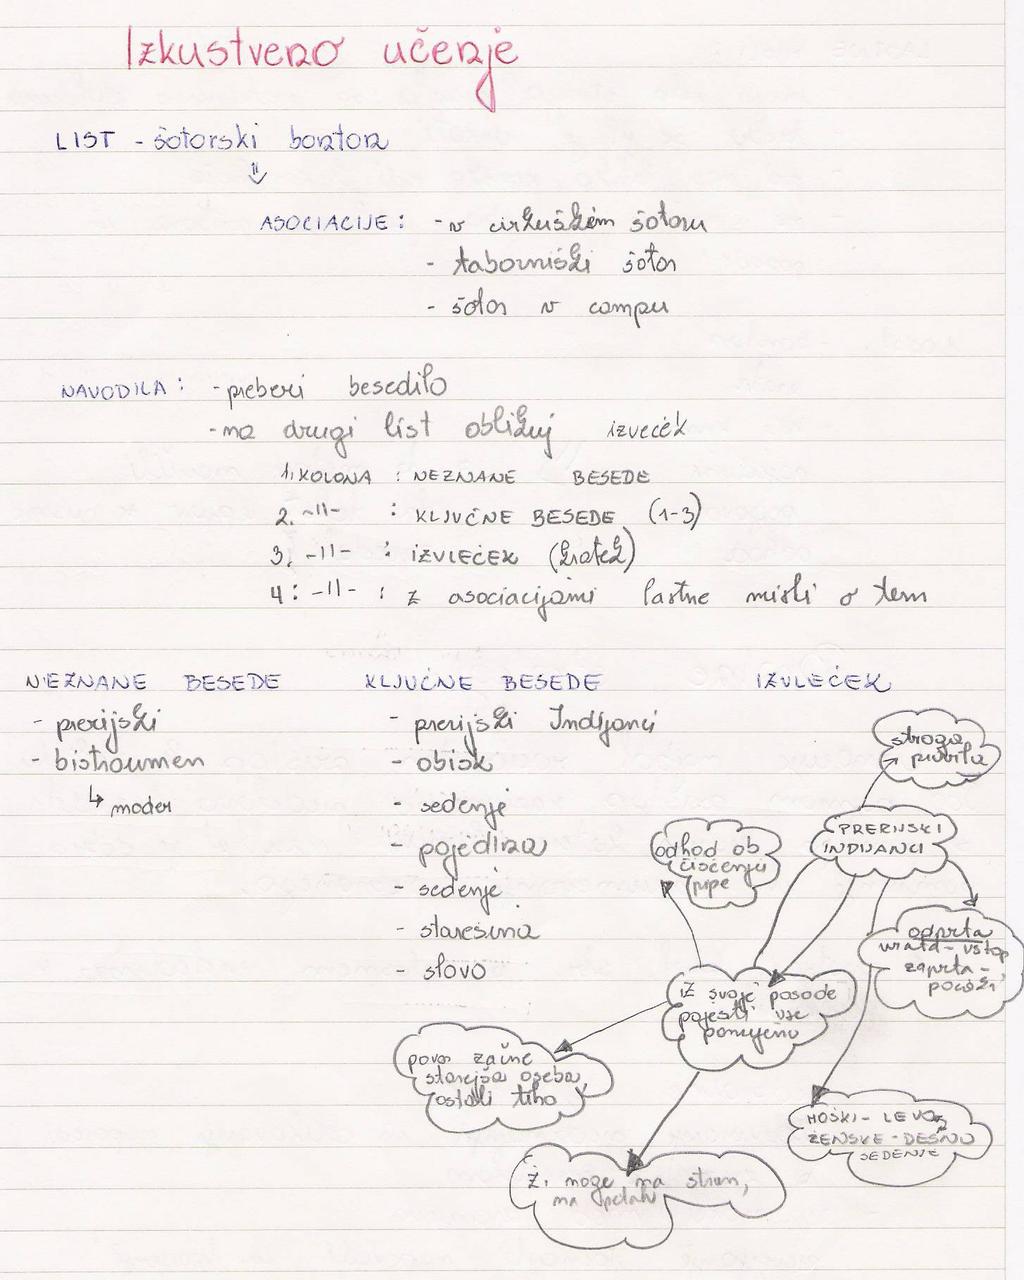 Izkustveno učenje
LIST - šotorski bonton
ASOCIACIJE: - v cirkuškem šotoru
- taborniški šotor
- šotor v campu
NAVODILA: - preberi besedilo
- na drugi list oblikuj izveček
1. KOLONA : NEZNANE BESEDE
2. -II- : KLJUČNE BESEDE (1-3)
3. -II- : IZVLEČEK (kratek)
4: -II- : z asociacijami lastne misli o tem
NEZNANE BESEDE KLJUČNE BESEDE IZVLEČEK
- prerijski
- bistroumen
↳ moder
- prerijski Indijanci
- obisk
- sedenje
- pojedina
- sedenje
- starešina
- slovo
stroga
pravila
PRERIJSKI
INDIJANCI
odhod ob
čiščenju
pipe
odprta
vrata - vstop
zaprta -
počaki
iz svoje posode
pojesti vse
ponujeno
povor začne
starejša oseba,
ostali tiho
MOŠKI - LEVO,
ŽENSKE - DESNO
SEDENJE
Ž. noge na stran,
na petah